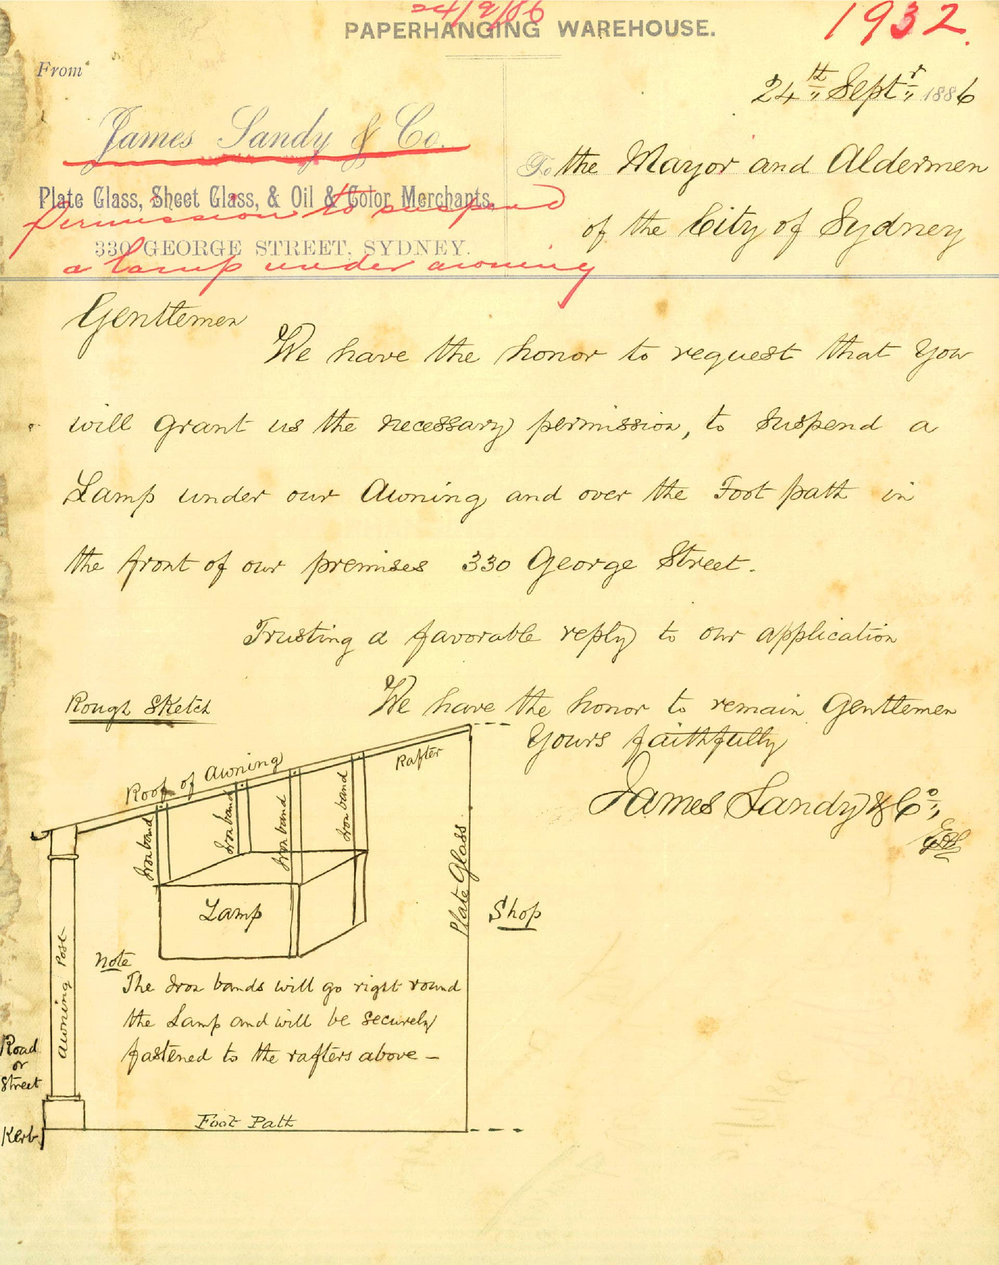 24/9/86
PAPERHANGING WAREHOUSE.
1932.
From
24th Septr 1886
James Sandy & Co.
To the Mayor and Aldermen
Plate Glass, Sheet Glass, & Oil & Color Merchants.
Permission to suspend
of the City of Sydney
330 GEORGE STREET, SYDNEY.
a lamp under awning
Gentlemen
We have the honor to request that you
will grant us the necessary permission, to suspend a
Lamp under our Awning and over the Foot path in
the front of our premises 330 George Street.
Trusting a favorable reply to our application
We have the honor to remain Gentlemen
Yours faithfully
James Sandy & Co
Rough Sketch
Roof of Awning
Rafter
Iron band
Iron band
Iron band
Iron band
Lamp
Plate Glass
Shop
Awning Post
Note
The Iron bands will go right round
the Lamp and will be securely
fastened to the rafters above —
Road
or
Street
Foot Path
Kerb